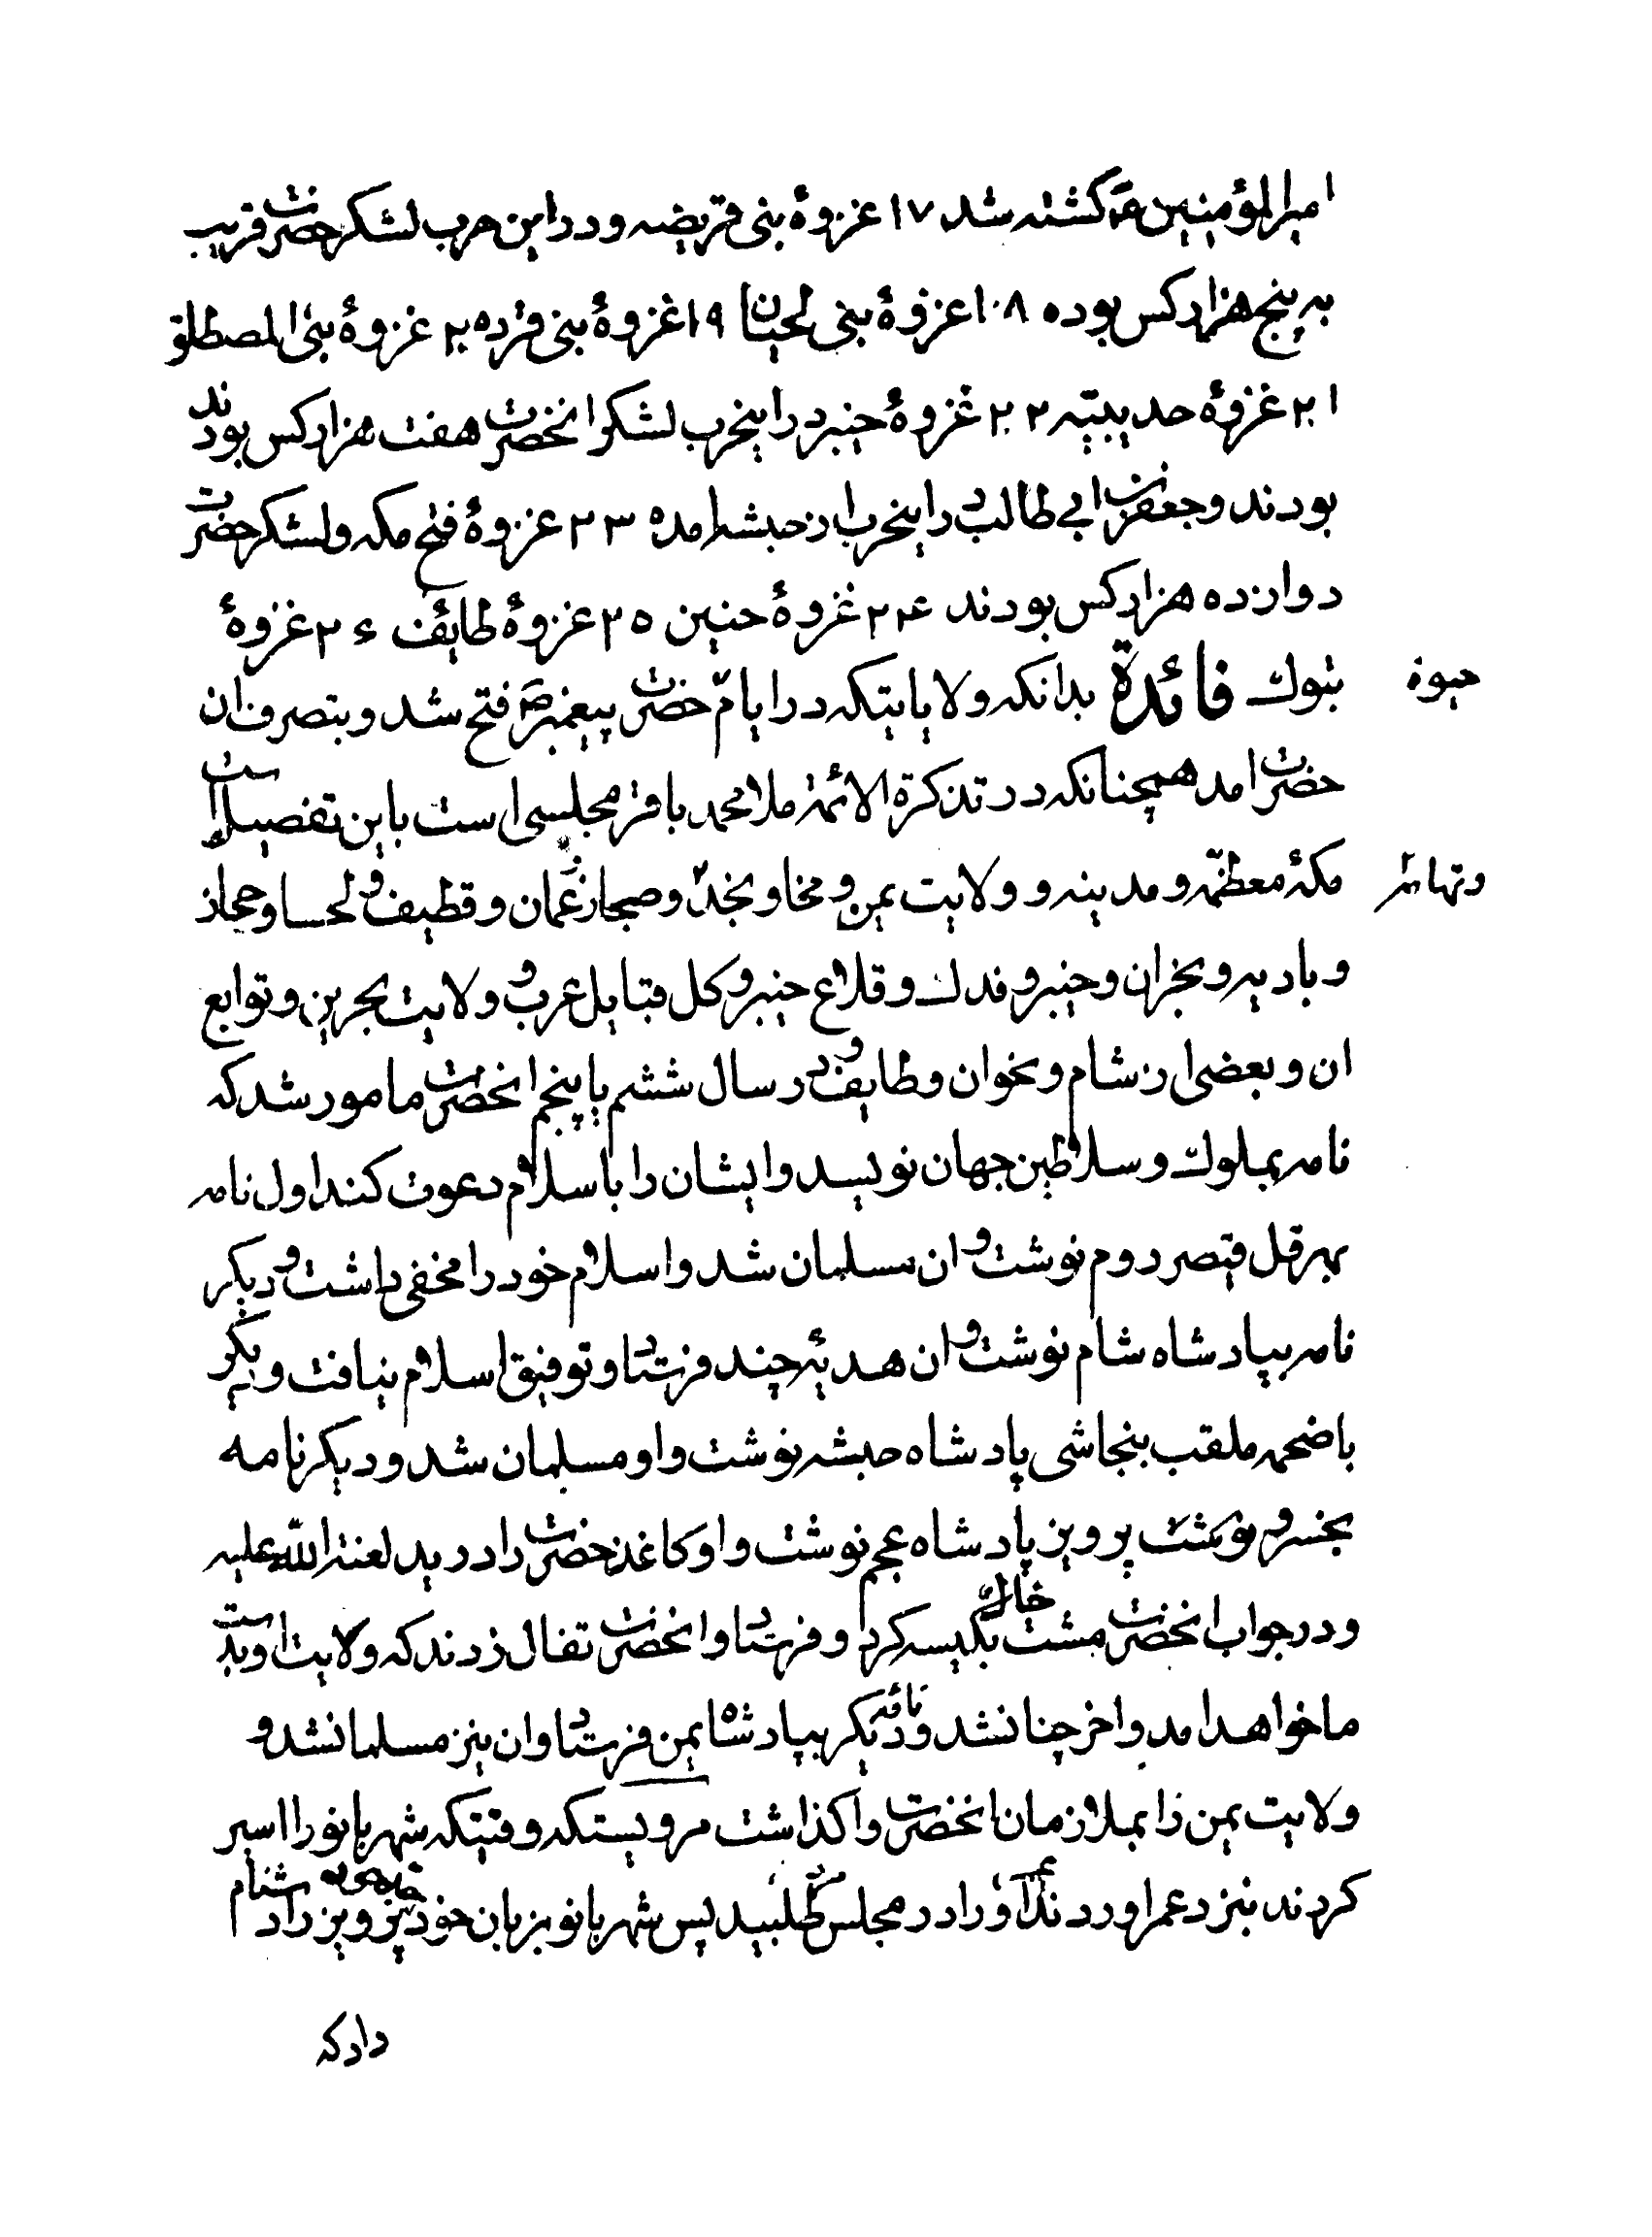 امیرالمؤمنین ع کشته شد ۱۷ غزوهٔ بنی قریضه و در این حرب لشکر حضرت قریب
به پنج هزار کس بوده ۱۸ غزوهٔ بنی لحیان ۱۹ غزوهٔ بنی قرده ۲۰ غزوهٔ بنی المصطلق
۲۱ غزوهٔ حدیبیّه ۲۲ غزوهٔ خیبر در اینحرب لشکر انحضرت هفت هزار کس بودند
بودند و جعفر بن ابی طالب در اینحرب از حبشه امده ۲۳ غزوهٔ فتح مکه و لشکر حضرت
دوازده هزار کس بودند ۲۴ غزوهٔ حنین ۲۵ غزوهٔ طایف ۲۶ غزوهٔ
تبوک فائدة بدانکه ولایاتیکه در ایام حضرت پیغمبر ص فتح شد و بتصرف ان
حیوة
حضرت امد همچنانکه در تذکرة الائمة ملا محمد باقر مجلسی است باین تفصیل است
مکهٔ معظمه و مدینه و ولایت یمن و مخا و نجد و صحار و عمان و قطیف و لحسا و حجاز
و تهامه
و بادیه و نجران و خیبر و فدک و قلاع خیبر و کل قبایل عرب و ولایت بحرین و توابع
ان و بعضی از شام و نخوان و طایف و در سال ششم یا پنجم انحضرت مامور شد که
نامه بملوک و سلاطین جهان نویسد و ایشان را باسلام دعوت کند اول نامه
بهرقل قیصر دوم نوشت و ان مسلمان شد و اسلام خود را مخفی داشت و دیکر
نامه بپادشاه شام نوشت و ان هدیهٔ چند فرستاد و توفیق اسلام نیافت و دیکر
باضحمه ملقب بنجاشی پادشاه حبشه نوشت و او مسلمان شد و دیکر نامه
بخسرو پرویز پادشاه عجم نوشت و او کاغذ حضرت را درید لعنة الله علیه
و در جواب انحضرت مشت خاک بکیسه کرد و فرستاد و انحضرت تفال زدند که ولایت او بدست
ما خواهد امد و اخر چنان شد و نامه دیکر بپادشاه یمن فرستاد و ان نیز مسلمان شد و
ولایت یمن را بملازمان انحضرت واکذاشت مرویستکه وقتیکه شهربانو را اسیر
کردند نزد عمر اوردند او را در مجلس طلبید پس شهربانو بزبان خود پرویز را دشنام
داد که